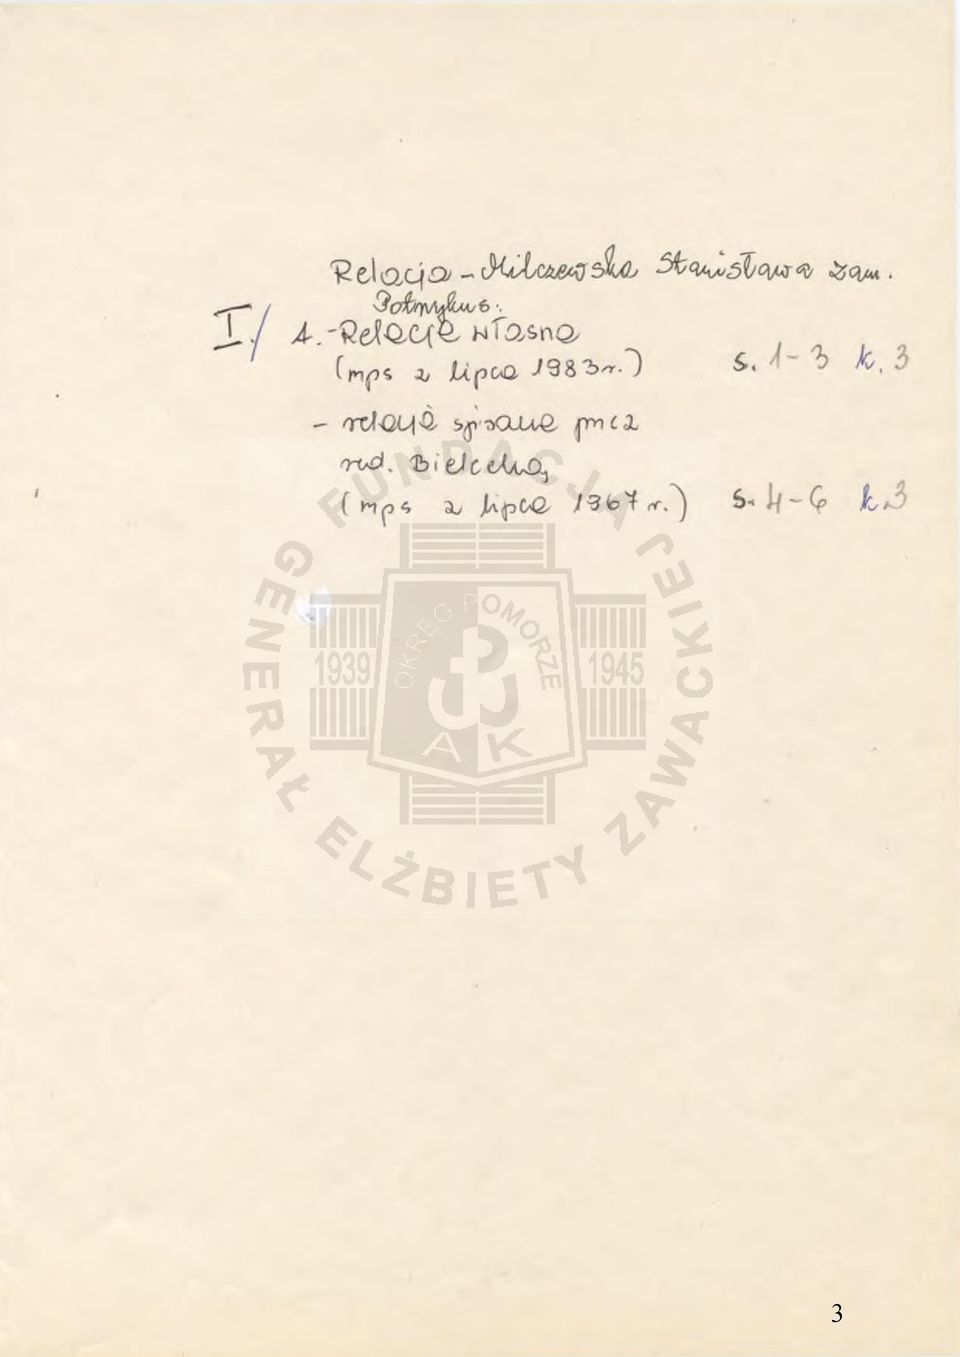 Relacja - Milczewska Stanisława zam.
Potmykus.
I./ 1. - Relacje własne
(mps z lipca 1983r.) s. 1-3 k. 3
- relacje spisane przez
red. Bielecką
(mps z lipca 1967 r.) s. 4-6 k.3
FUNDACJA GENERAŁ ELŻBIETY ZAWACKIEJ
OKRĘG POMORZE
1939 1945
AK
3